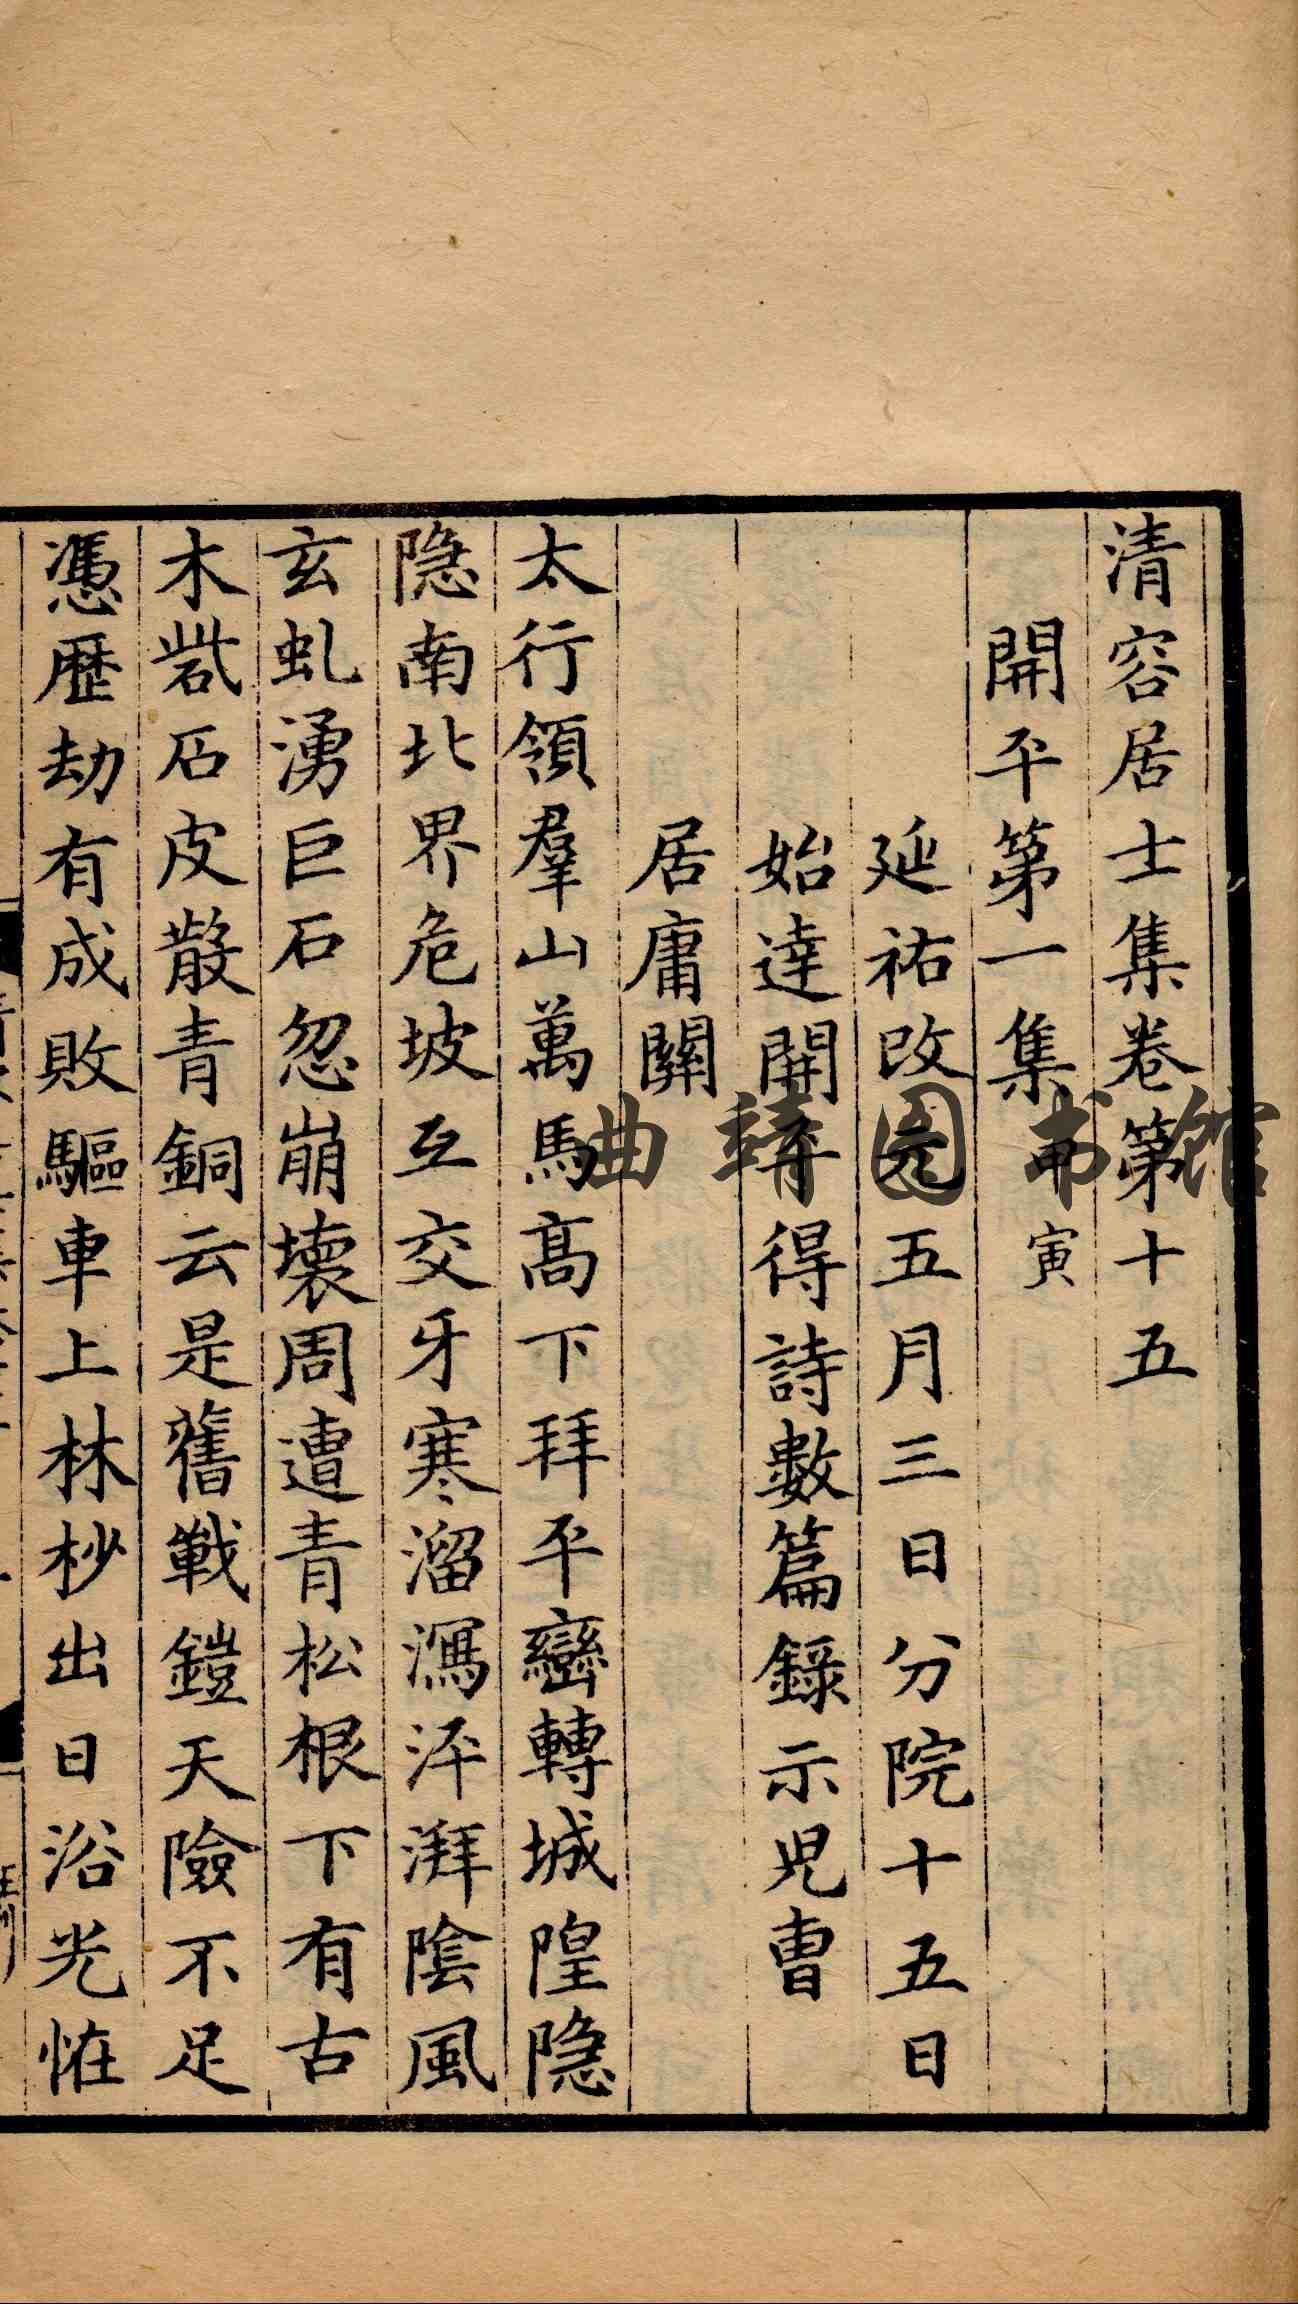 清容居士集卷第十五
開平第一集甲寅
延祐改元五月三日分院十五日
始達開平得詩數篇錄示兒曹
居庸關
太行領羣山萬馬高下拜平巒轉城隍隐
隐南北界危坡互交牙寒溜瀉泙湃陰風
玄虬湧巨石忽崩壞周遭青松根下有古
木砦石皮散青銅云是舊戰鎧天險不足
憑歷劫有成敗驅車上林杪出日浴光恠
曲靖图书馆